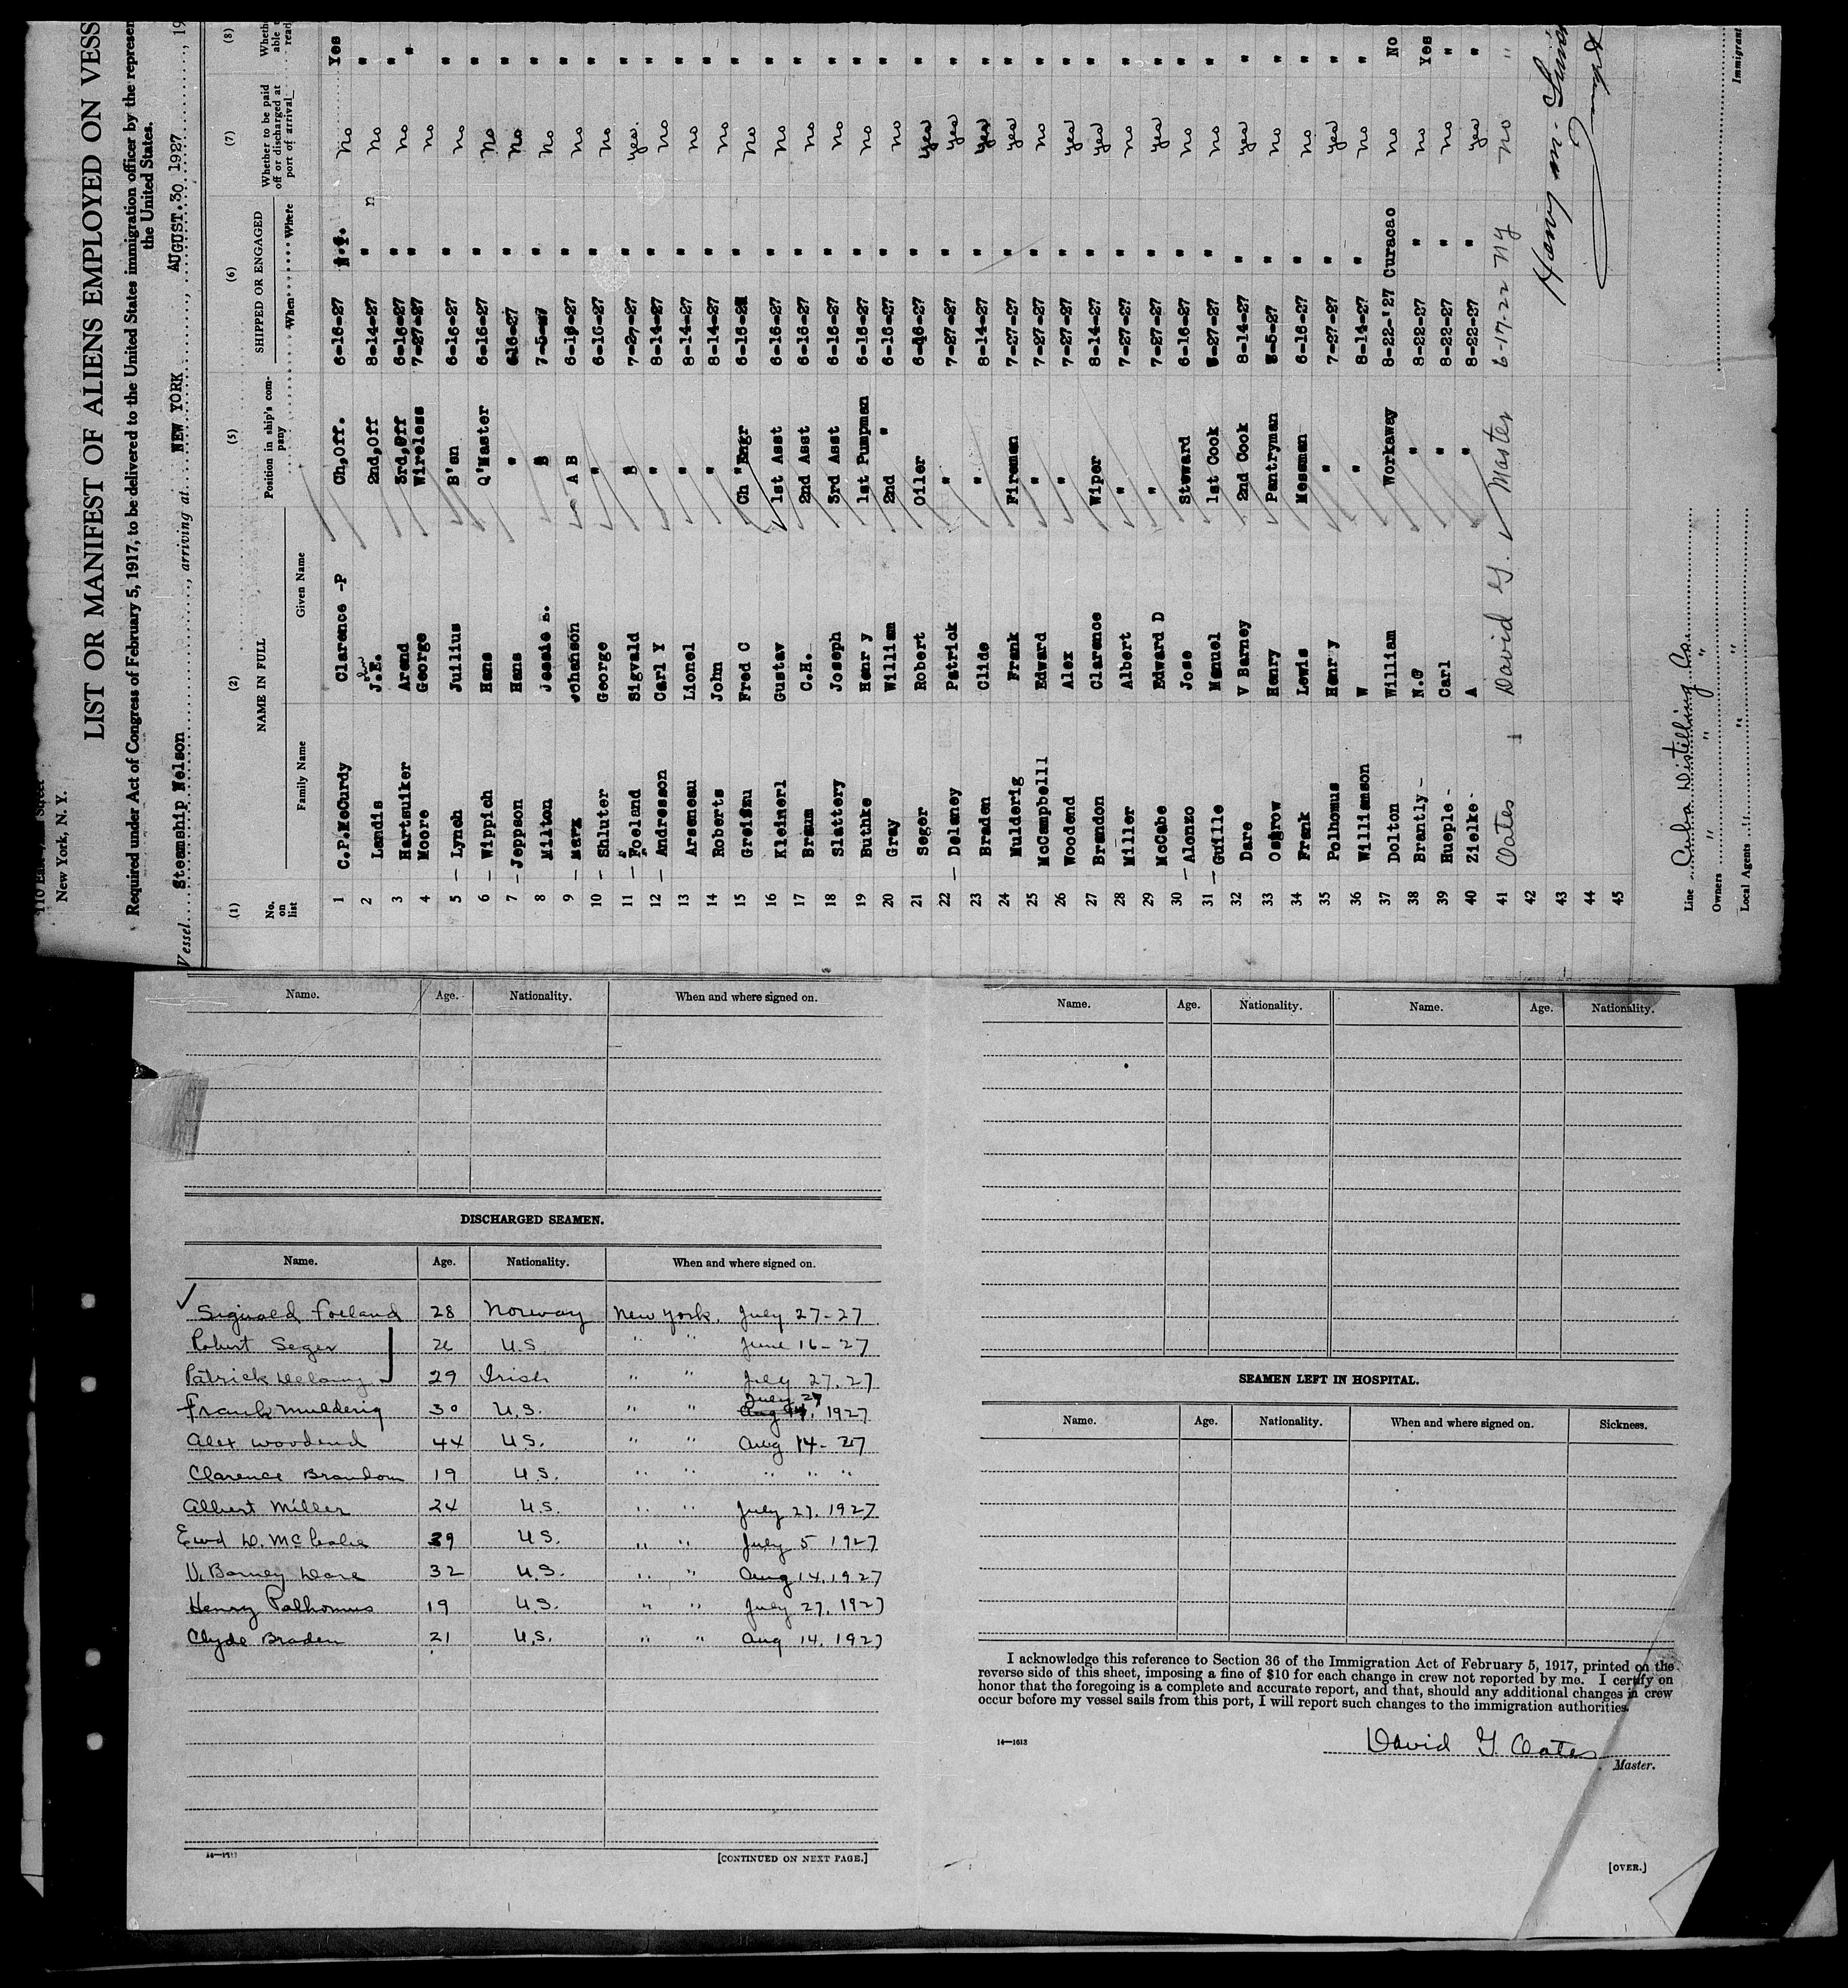 New York, N. Y.
LIST OR MANIFEST OF ALIENS EMPLOYED ON VESS
Required under Act of Congress of February 5, 1917, to be delivered to the United States immigration officer by the represen
the United States.
Vessel Steamship Nelson, arriving at NEW YORK, AUGUST.30 1927, 19
(1) (2) (5) (6) (7) (8)
No. on list NAME IN FULL Family Name Given Name Position in ship's company SHIPPED OR ENGAGED When Where Whether to be paid off or discharged at port of arrival Wheth able t read
1 C.P.McCurdy Clarence -P Ch,Off. 6-16-27 No Yes
2 Landis J.E. 2nd,Off 8-14-27 " n No "
3 Hartsuiker Arend 3rd,Off 6-16-27 " No "
4 Moore George Wireless 7-27-27 " no "
5 — Lynch Jullius B'sn 6-16-27 " no "
6 — Wippich Hans Q'Master 6-16-27 " No "
7 — Jeppson Hans " 616-27 " No "
8 Milton Jessie 7-5-27 " No "
9 — Marx Johanson A B 6-16-27 " No "
10 - Shluter George " 6-16-27 " No "
11 — Foeland Sigvald 7-27-27 " yes. "
12 — Andresson Carl Y " 8-14-27 " No "
13 Arseneau Lionel " 8-14-27 " No "
14 Roberts John " 8-14-27 " No "
15 Fred C Ch Engr " No "
16 Kleinerl Gustav 1st Asst 6-16-27 " No "
17 Braum C.H. 2nd Asst 6-16-27 " No "
18 Slattery Joseph 3rd Asst 6-16-27 " No "
19 Buthke Henr y 1st Pumpman 6-16-27 " No "
20 Gray William 2nd " 6-16-27 " No "
21 Seger Robert Oiler " yes "
22 — Delaney Patrick " 7-27-27 " yes "
23 Braden Clide " 8-14-27 " yes "
24 Mulderig Frank Fireman 7-27-27 " yes "
25 McCampbelll Edward " 7-27-27 " No "
26 Woodend Alex " 7-27-27 " yes "
27 Brandon Clarence Wiper 8-14-27 " yes "
28 Miller Albert " 7-27-27 " no "
29 McCabe Edward D " 7-27-27 " yes "
30 — Alonzo Jose Steward 6-16-27 " no "
31 — Guille Manuel 1st Cook " no "
32 Dare V Barney 2nd Cook 8-14-27 " yes "
33 Osgrow Henry Pantryman " no "
34 Frank Lewis Messman 6-16-27 " no "
35 Polhomus Henry " 7-27-27 " yes "
36 Williamson W " 8-14-27 " no "
37 Dolton William Workaway 8-22-'27 Curacao no No
38 Brantly - N.G " 8-22-27 " no Yes
39 Rueple - Carl " 8-22-27 " no "
40 Zielke - A " 8-22-27 " yes "
41 Oates David G. Master 6-17-22 NY no "
42
43
44
45
Line Cuba Distilling Co.
Owners " " "
Local Agents " " "
Immigrant
Name. Age. Nationality. When and where signed on.
DISCHARGED SEAMEN.
Name. Age. Nationality. When and where signed on.
Sigvald Foeland 28 Norway New York. July 27-27
Robert Seger 26 U.S. " " June 16-27
Patrick Delany 29 Irish " " July 27.27
Frank Mulderig 30 U.S. " " July 27 Aug 14. 1927
Alex Woodend 44 U.S. " " Aug 14-27
Clarence Brandom 19 U.S. " " " " "
Albert Miller 24 U.S. " " July 27. 1927
Ewd D. McCabe 39 U.S. " " July 5 1927
V. Barney Dare 32 U.S. " " Aug 14. 1927
Henry Polhomus 19 U.S. " " July 27. 1927
Clyde Braden 21 U.S. " " Aug 14. 1927
[CONTINUED ON NEXT PAGE.]
Name. Age. Nationality. Name. Age. Nationality.
SEAMEN LEFT IN HOSPITAL.
Name. Age. Nationality. When and where signed on. Sickness.
I acknowledge this reference to Section 36 of the Immigration Act of February 5, 1917, printed on the
reverse side of this sheet, imposing a fine of $10 for each change in crew not reported by me. I certify on
honor that the foregoing is a complete and accurate report, and that, should any additional changes in crew
occur before my vessel sails from this port, I will report such changes to the immigration authorities.
14—1613
David G. Oates
Master.
[OVER.]